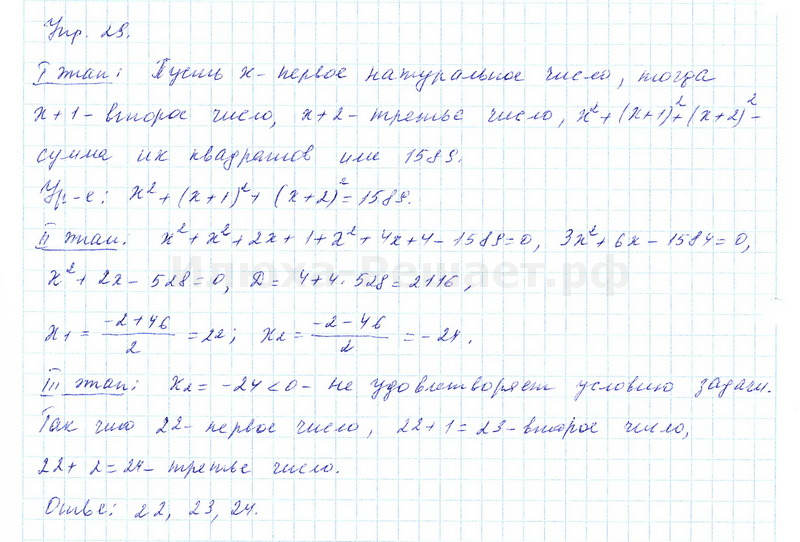 Упр. 29.
I этап: Пусть x - первое натуральное число, тогда
x+1 - второе число, x+2 - третье число, x²+(x+1)²+(x+2)² -
сумма их квадратов или 1589.
Ур-е: x²+(x+1)²+(x+2)²=1589.
II этап: x²+x²+2x+1+x²+4x+4-1589=0, 3x²+6x-1584=0,
x²+2x-528=0, D=4+4·528=2116,
x₁=(-2+46)/2=22; x₂=(-2-46)/2=-24.
III этап: x₂=-24<0 - не удовлетворяет условию задачи.
Так что 22 - первое число, 22+1=23 - второе число,
22+2=24 - третье число.
Ответ: 22, 23, 24.
Илюха-Решает.рф